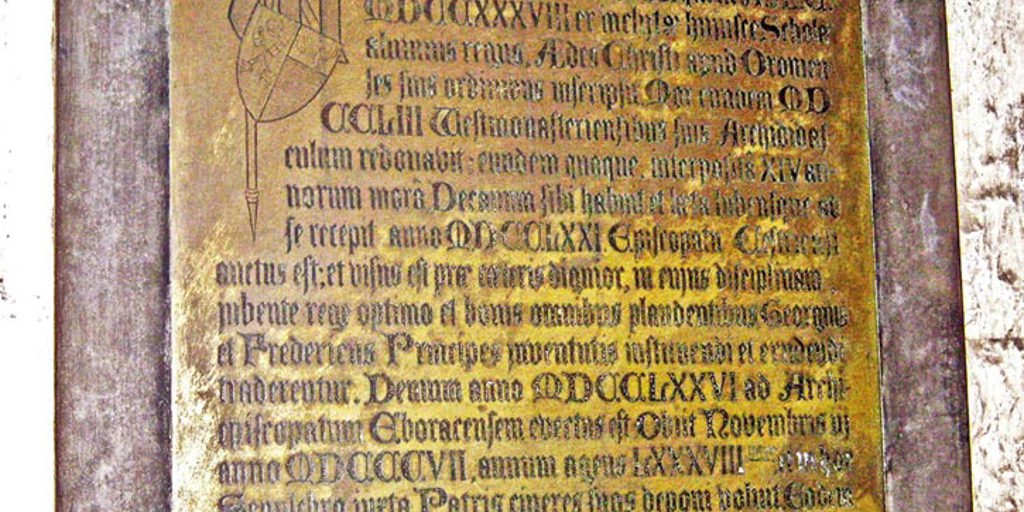 MDCCXXXVIII et inclytæ hujusce Scholæ
alumnus regius, Ædes Christi apud Oxonien
ses suis ordinibus inscripsit Mox eundem MD
CCLIII Westmonasteriensibus suis Archididas
culum redonavit: eundem quoque, interposita XIV an-
norum morâ Decanum sibi habuit et læta lubensque
se recepit anno MDCCLXXI Episcopatu Cestriensi
auctus est: et visus est præ cæteris dignior, in cujus disciplinam
jubente rege optimo et bonis omnibus plaudentibus Georgius
et Fredericus Principes juventutis instituendi et erudiendi
traderentur. Demum anno MDCCLXXVI ad Archi-
episcopatum Eboracensem evectus est Obiit Novembris iij
anno MDCCCVII, annum agens LXXXVIII
Sepulchro juxta Patris cineres suos deponi voluit